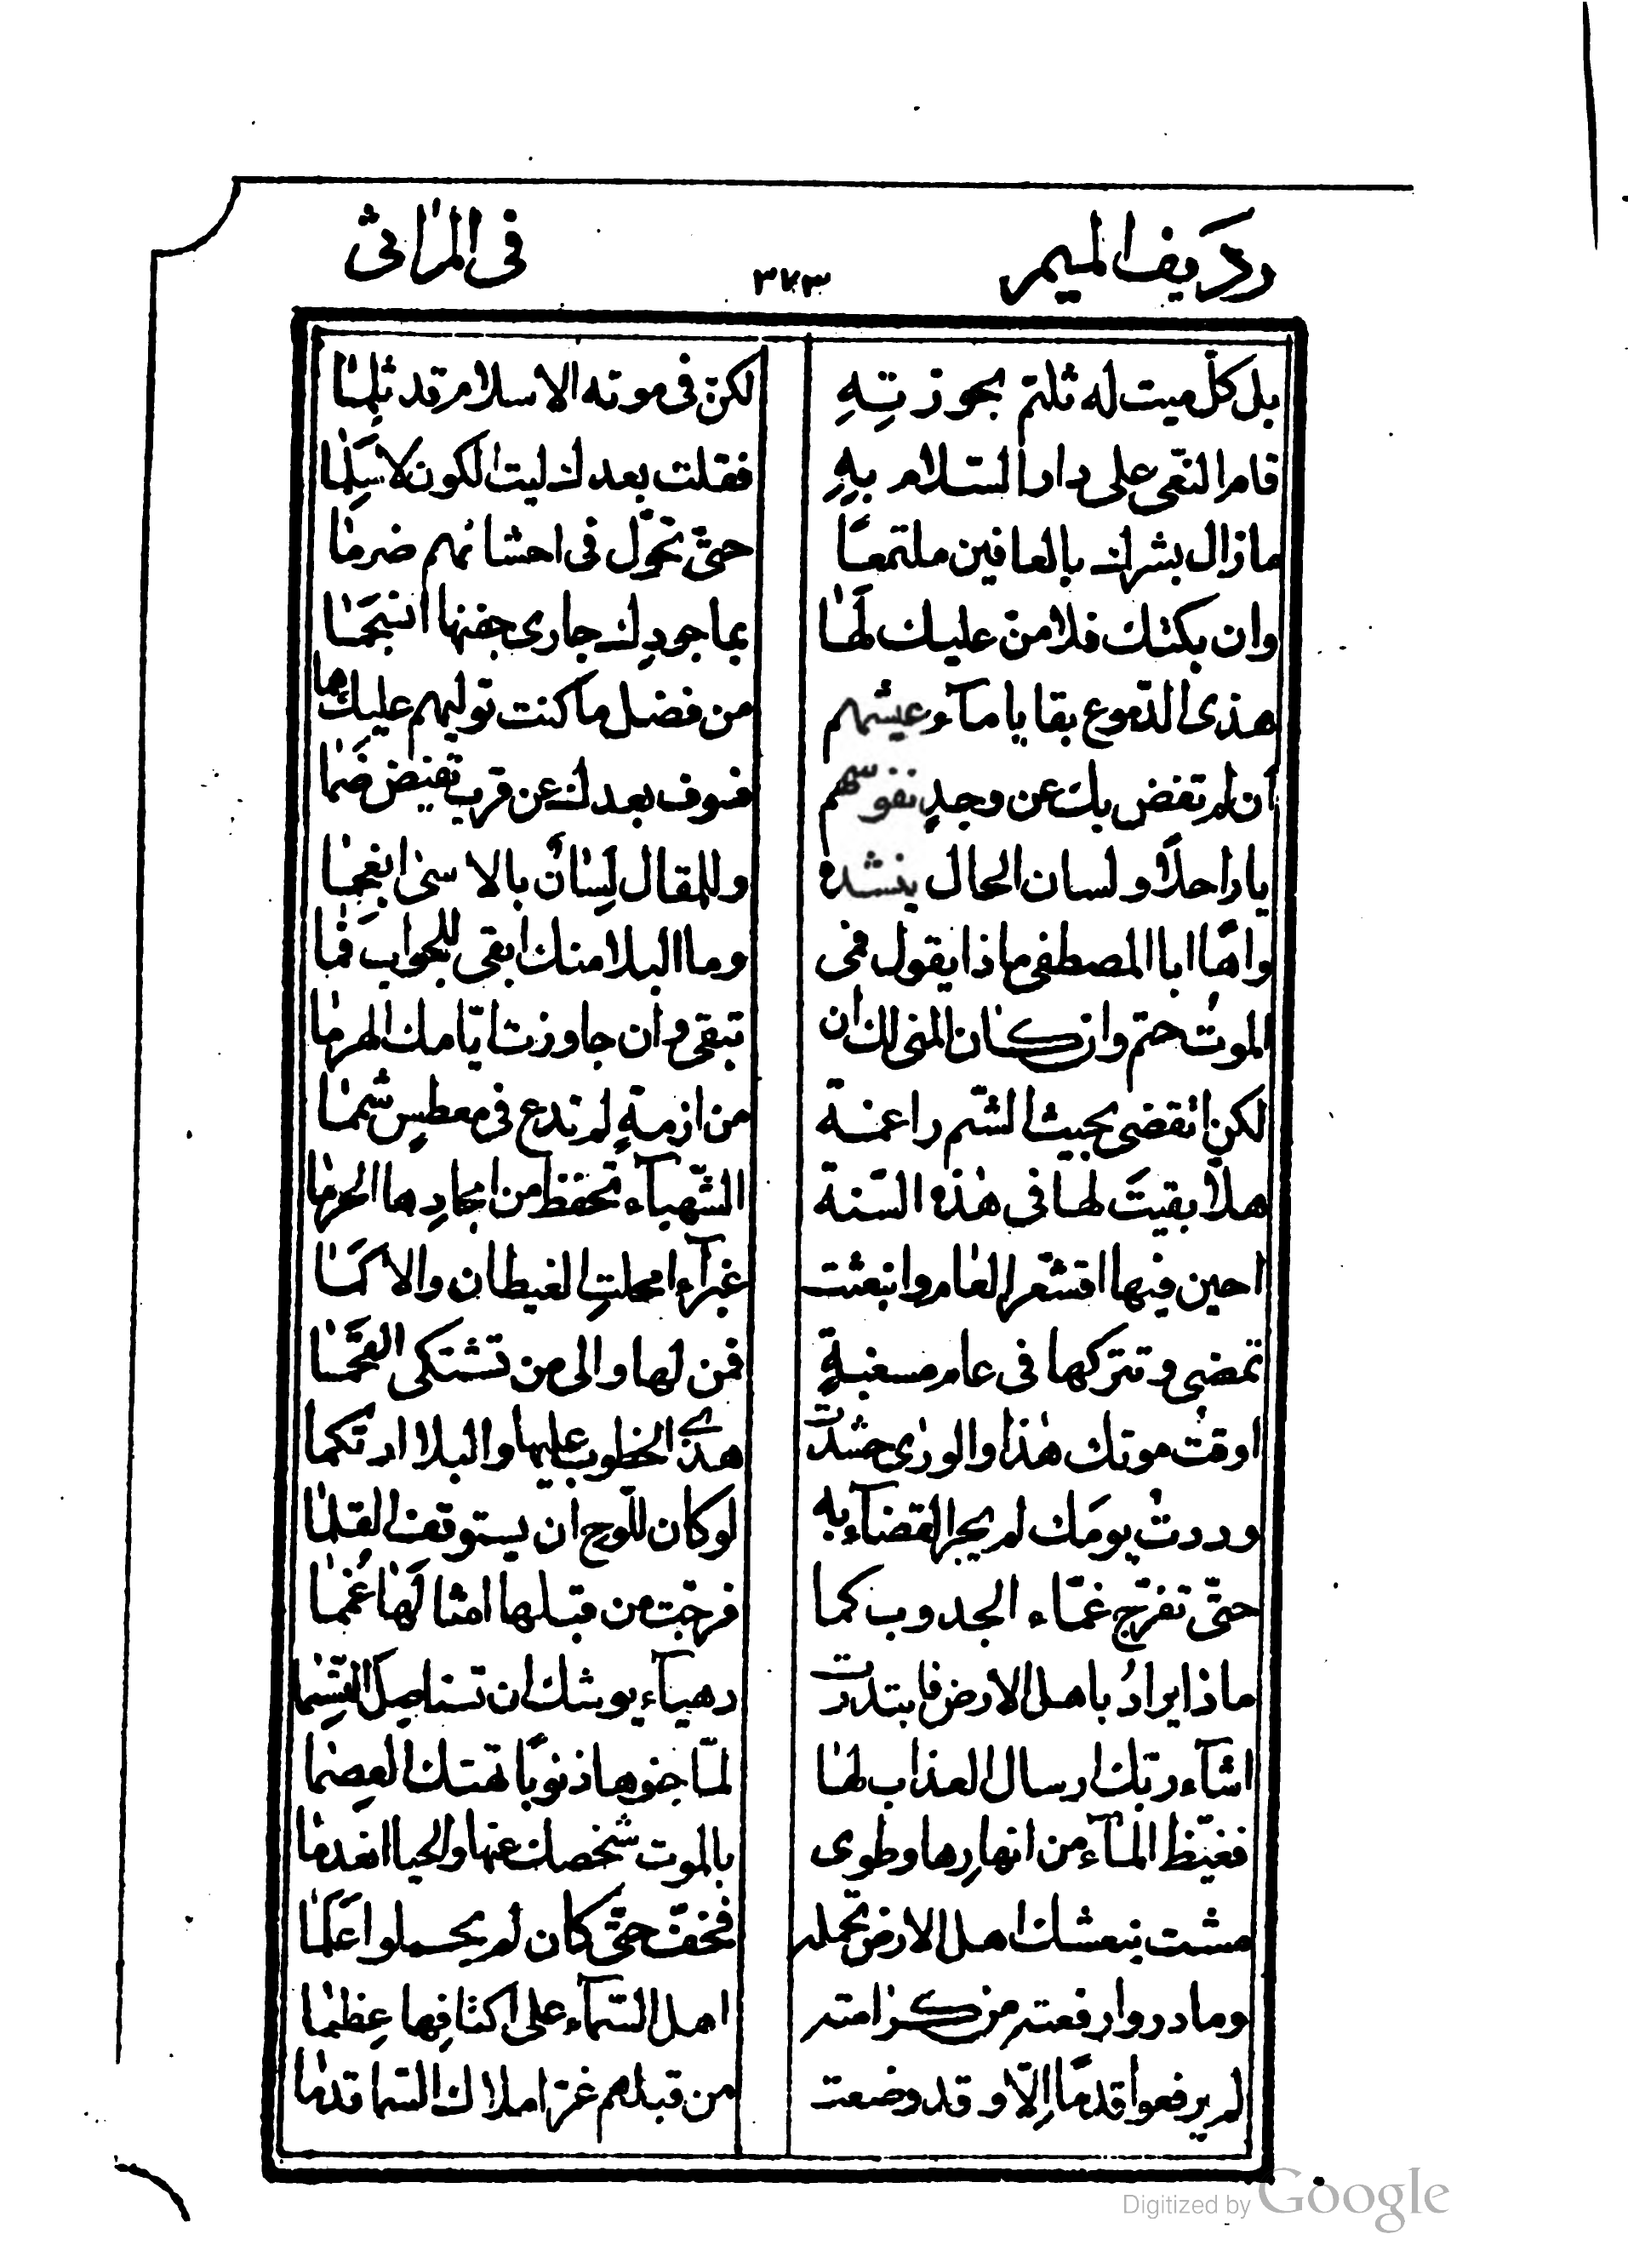 رديف الميم ٣٧٣ فى المراثى
بل كلّ ميت له ثلتم بحوزتهِ لكنّ فى موته الاسلام قد ثلما
قام النعّى على دار السّلام بهِ فقلت بعدك ليت الكون لا سَلِما
ما زال بشرك بالعافين ملتمعًا حتّى تحوّل فى احشائهم ضرما
وان بكتك فلا منّ عليك لَها بما جودِك جارى جفنها انسَجَما
هذى الدّموع بقايا مآء عيشهم من فضل ما كنت توليهم عليك هما
ان لم تفض بك عن وجدٍ نفوسهم فسوف بعدك عن قربٍ تفيض ضَما
يا راحلًا ولسان الحال ينشده وللمقال لِسانٌ بالاسىٰ انعجما
واهًا ابا المصطفى ماذا يقول فمى وما البلا منك ابقى للجواب فَما
الموتُ حتم وان كان المنى لك ان تبقى وان جاوزت ايّامك الهرما
لكن اتقضى بحيث الشتم راغمة من ازمةٍ لم تدع فى معطسٍ شمما
هلّا بقيتَ لها فى هٰذه السّنة الشّهبآء تحفظ من امجادِها الحرما
احين فيها اقشعّر العام وانبعثت غبرآء امحلتِ الغيطان والاكما
تمضى وتتركها فى عام مسغبةٍ فمن لها والى من تشتكى القحَما
اوقت موتك هٰذا والورىٰ حشدت هذى الخطوب عليها والبلا ارتكما
وددتُ يومَك لم يجر القضآء به لو كان للّوح ان يستوقف القلما
حتّى تفرّج غمّاء الجدوب كما فرجّت من قبلها امثالَها غُمما
ماذا يرادُ باهل الارض فابتدرت دهيآء يوشك ان تستاصِل النّسما
اشآء ربّك ارسال العذاب لها لمّا جنوها ذنوبًا تهتك العِصما
فغيّظ المآء من انهارِها وطوى بالموت شخصك عنها والحيا انعدما
مشت بنعشك اهل الارض تحمله فخفّ حتّى كان لم يحملوا عَلَما
وما دروا رفعته من كرامته اهل السّمآء على اكتافِها عِظما
لم يرفعوا قدمًا إلّا وقد وضعت من قبلهم غرّ املاك السّما قدما
Digitized by Google